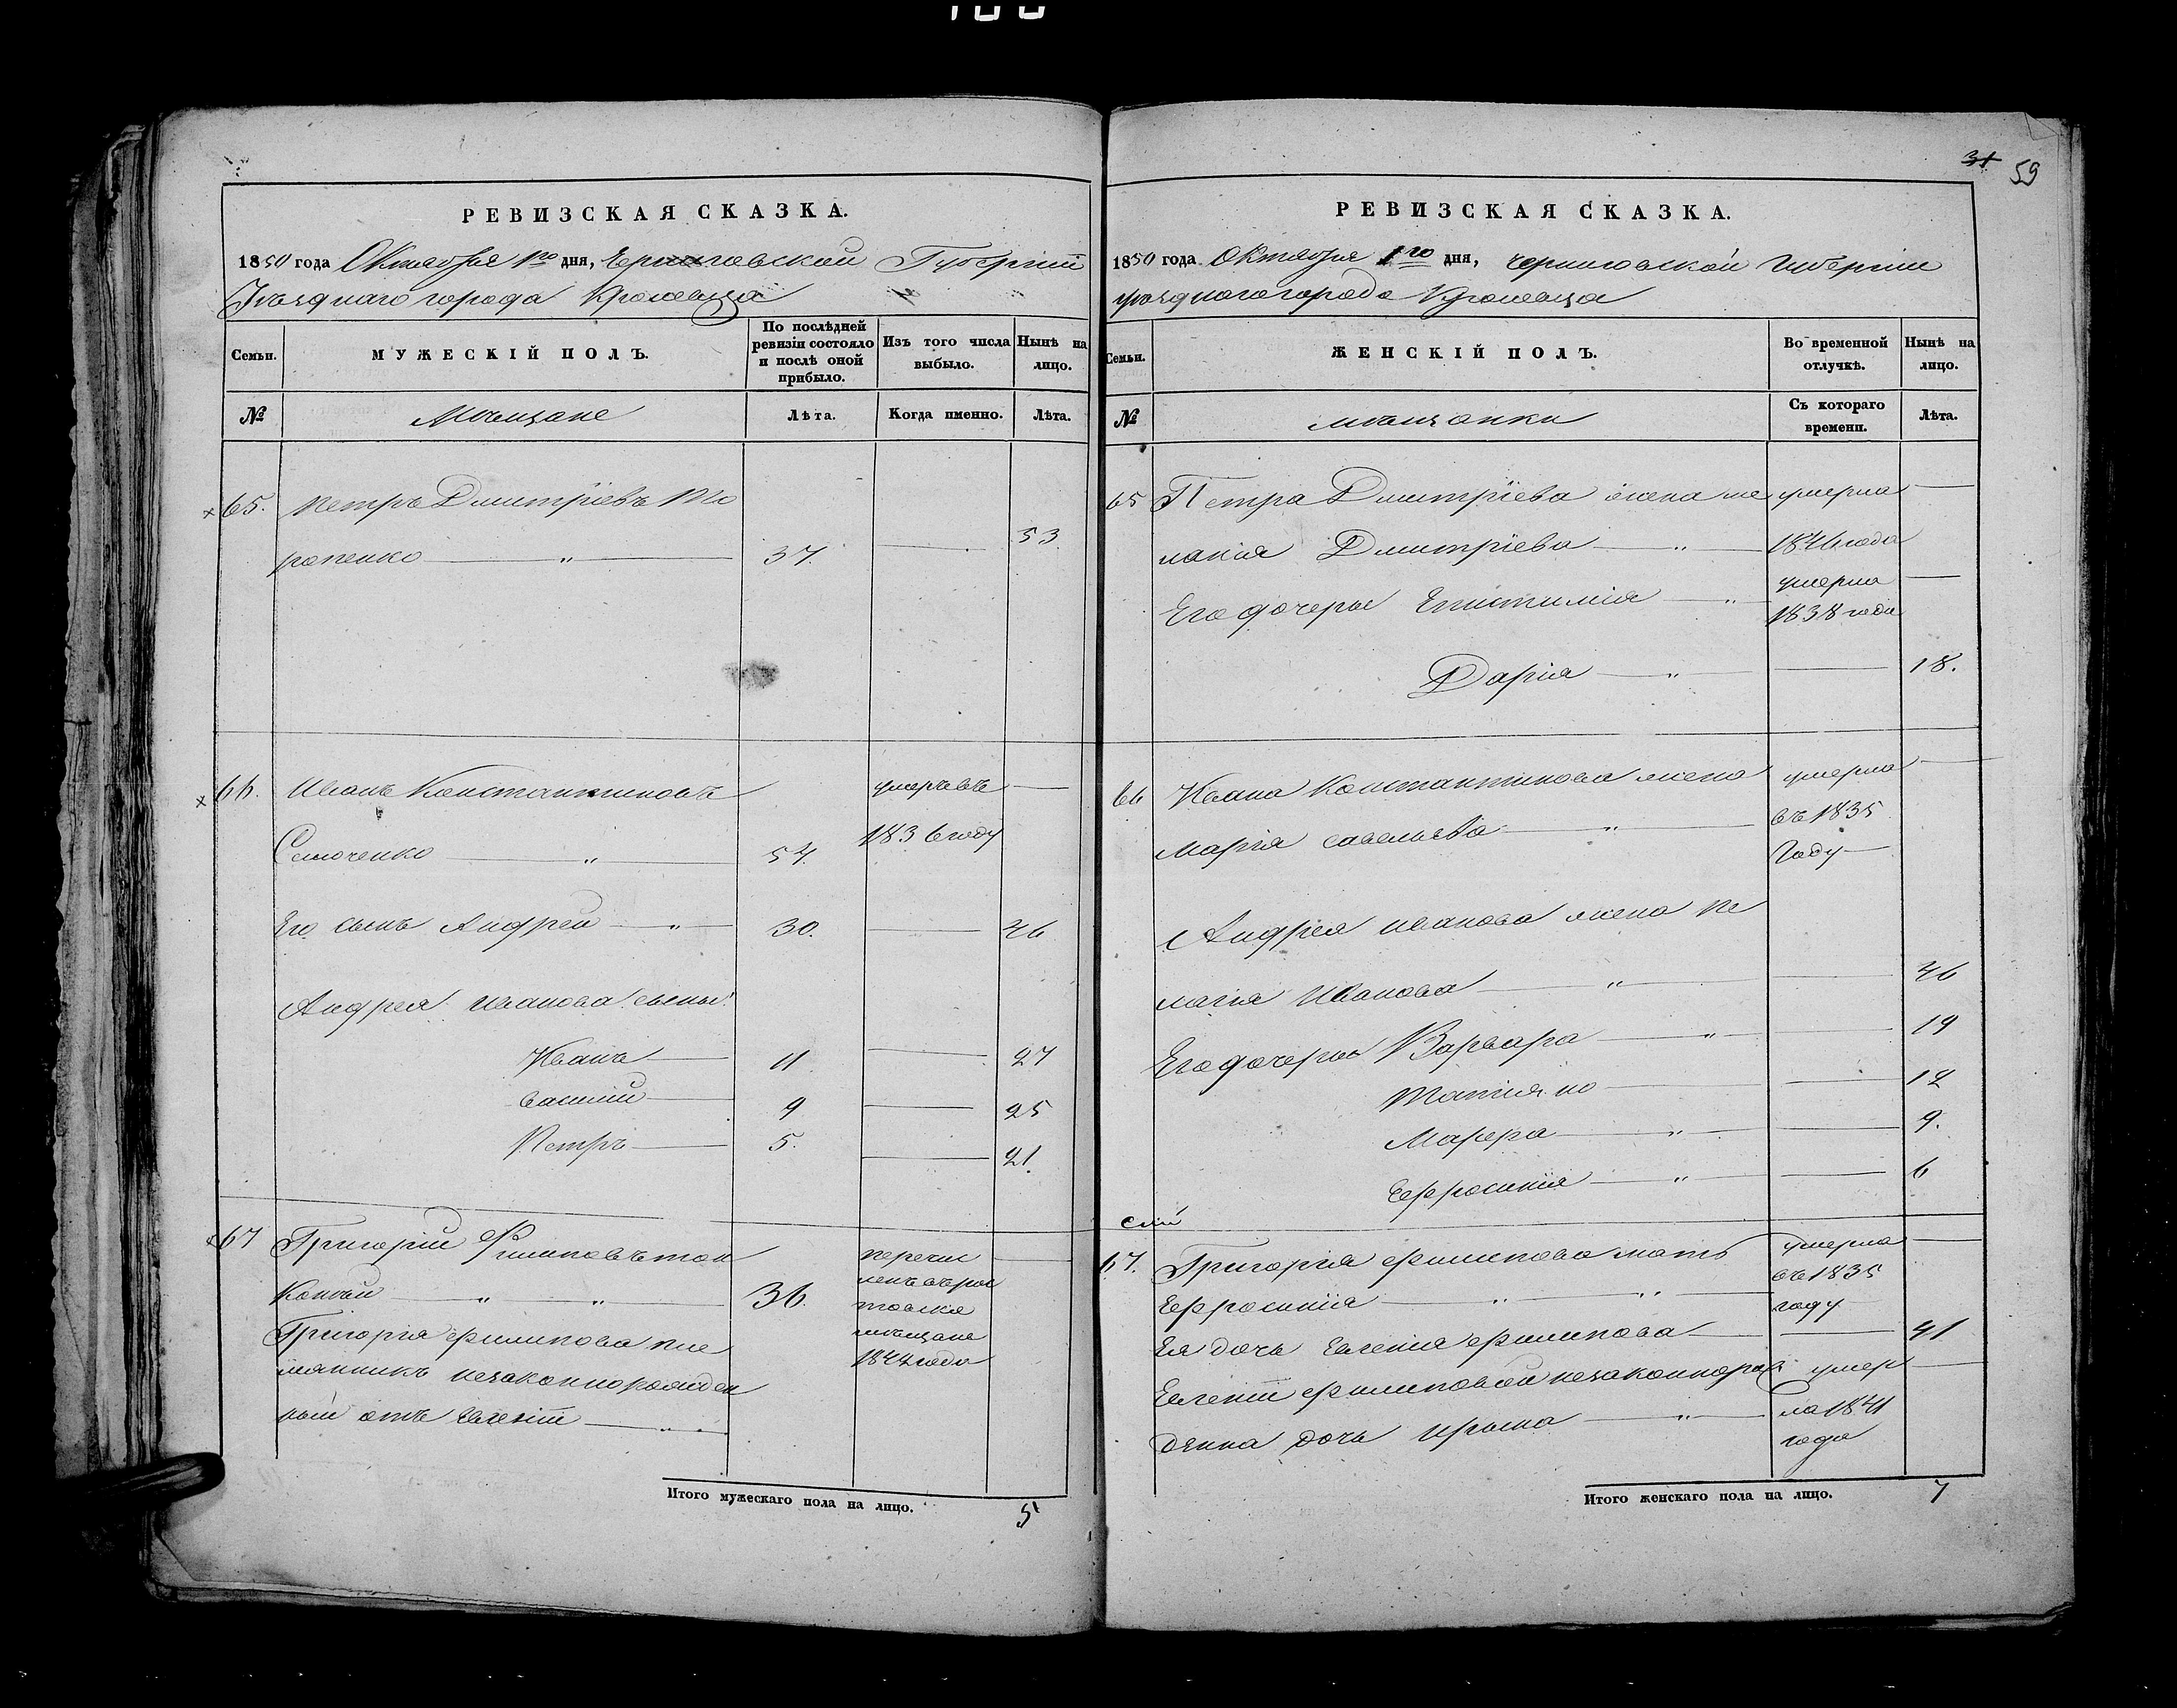 РЕВИЗСКАЯ СКАЗКА.
1850 года Октября 1го дня, Черниговской Губернии
Уѣзднаго города Кролевца
Семьи.
МУЖЕСКІЙ ПОЛЪ.
По послѣдней ревизіи состояло и послѣ оной прибыло.
Изъ того числа выбыло.
Нынѣ на лицо.
№
Мѣщане
Лѣта.
Когда именно.
Лѣта.
65. Петръ Дмитріевъ
53
37.
66. Иванъ Константиновъ умеръ въ
1836 году
54
Его сынъ Андрей 30. 46
Андрея Иванова сыны:
Иванъ 11 27
Василий 9 25
Петръ 5. 21.
67 Григорій Филиповъ пере­чис
36. ленъ въ рос
товскія
Григорія Филипова пле мѣщане
мянникъ незаконнорожден 1844 года
ный отъ Евгеніи
Итого мужескаго пола на лицо. 5
31 59
РЕВИЗСКАЯ СКАЗКА.
1850 года Октября 1го дня, Черниговской Губерніи
уѣзднаго города Кролевца
Семьи.
ЖЕНСКІЙ ПОЛЪ.
Во временной отлучкѣ.
Нынѣ на лицо.
№
мѣщанки
Съ котораго времени.
Лѣта.
65 Петра Дмитріева жена ме умерла
ланія Дмитріева 1846 года
Его дочеры Епистимія умерла
1838 года
Дарія 18.
66 Ивана Константинова жена умерла
Марія Савельева въ 1835
Году
Андрея Иванова жена Пе
лагія Иванова 46
Его дочеры Варвара 19
Татіяна 12
Марфа 9.
Ефросинія 6
67. Григорія Филипова мать умерла
въ 1835
Ефросинія году
Ея дочь Евгенія Филипова 41
Евгеніи Филиповой незаконнорож умер
денна дочь Ирына ла 1841
года
Итого женскаго пола на лицо. 7